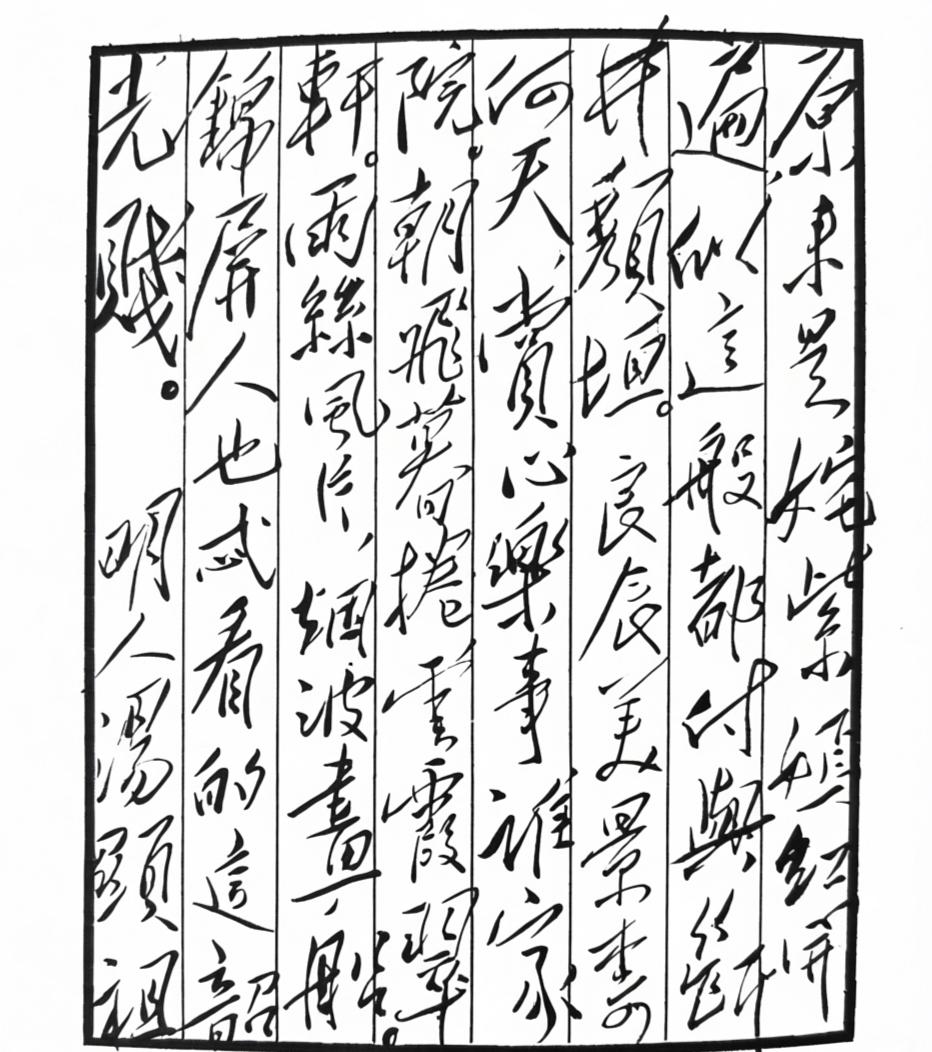 原来是姹紫嫣紅開
遍似這般都付與斷
井頹垣。良辰美景奈
何天賞心樂事誰家
院。朝飛暮捲雲霞翠
軒。雨絲風片、烟波畫船。
錦屏人也忒看的這韶
光賤。 明人湯顯祖